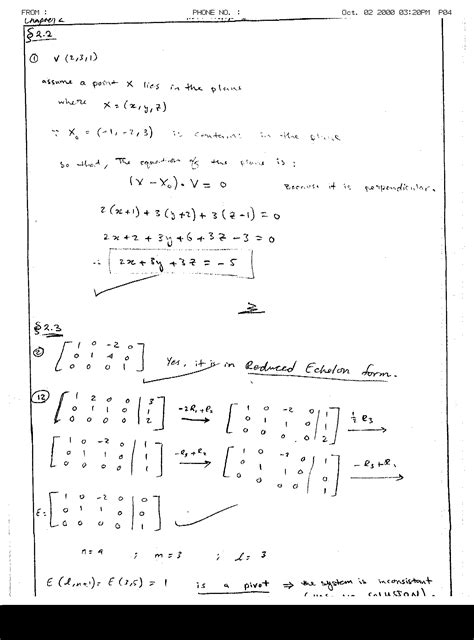 FROM : PHONE NO. : Oct. 02 2000 03:20PM P04
Chapter 2
§2.2
① V (2,3,1)
assume a point X lies in the plane
where X = (x, y, z)
∵ X₀ = (-1, -2, 3) is contained in the plane
so that, The equation of the plane is :
(X - X₀) • V = 0 Because it is perpendicular.
2(x+1) + 3(y+2) + 3(z-1) = 0
2x+2 + 3y+6 + 3z-3 = 0
∴ 2x + 3y + 3z = -5
§2.3
② [ 1 0 -2 0
0 1 4 0
0 0 0 1 ] Yes, it is in Reduced Echelon form.
⑫ [ 1 2 0 0 | 3
0 1 1 0 | 1
0 0 0 0 | 2 ] -2R₂+R₁ → [ 1 0 -2 0 | 1
0 1 1 0 | 1
0 0 0 0 | 2 ] ½R₃ →
[ 1 0 -2 0 | 1
0 1 1 0 | 1
0 0 0 0 | 1 ] -R₃+R₂ → [ 1 0 -2 0 | 1
0 1 1 0 | 0
0 0 0 0 | 1 ] -R₃+R₁ →
E = [ 1 0 -2 0 | 0
0 1 1 0 | 0
0 0 0 0 | 1 ]
n = 4 ; m = 3 ; l = 3
E(l,n+1) = E(3,5) = 1 is a pivot ⇒ the system is inconsistent
SOLUTION).